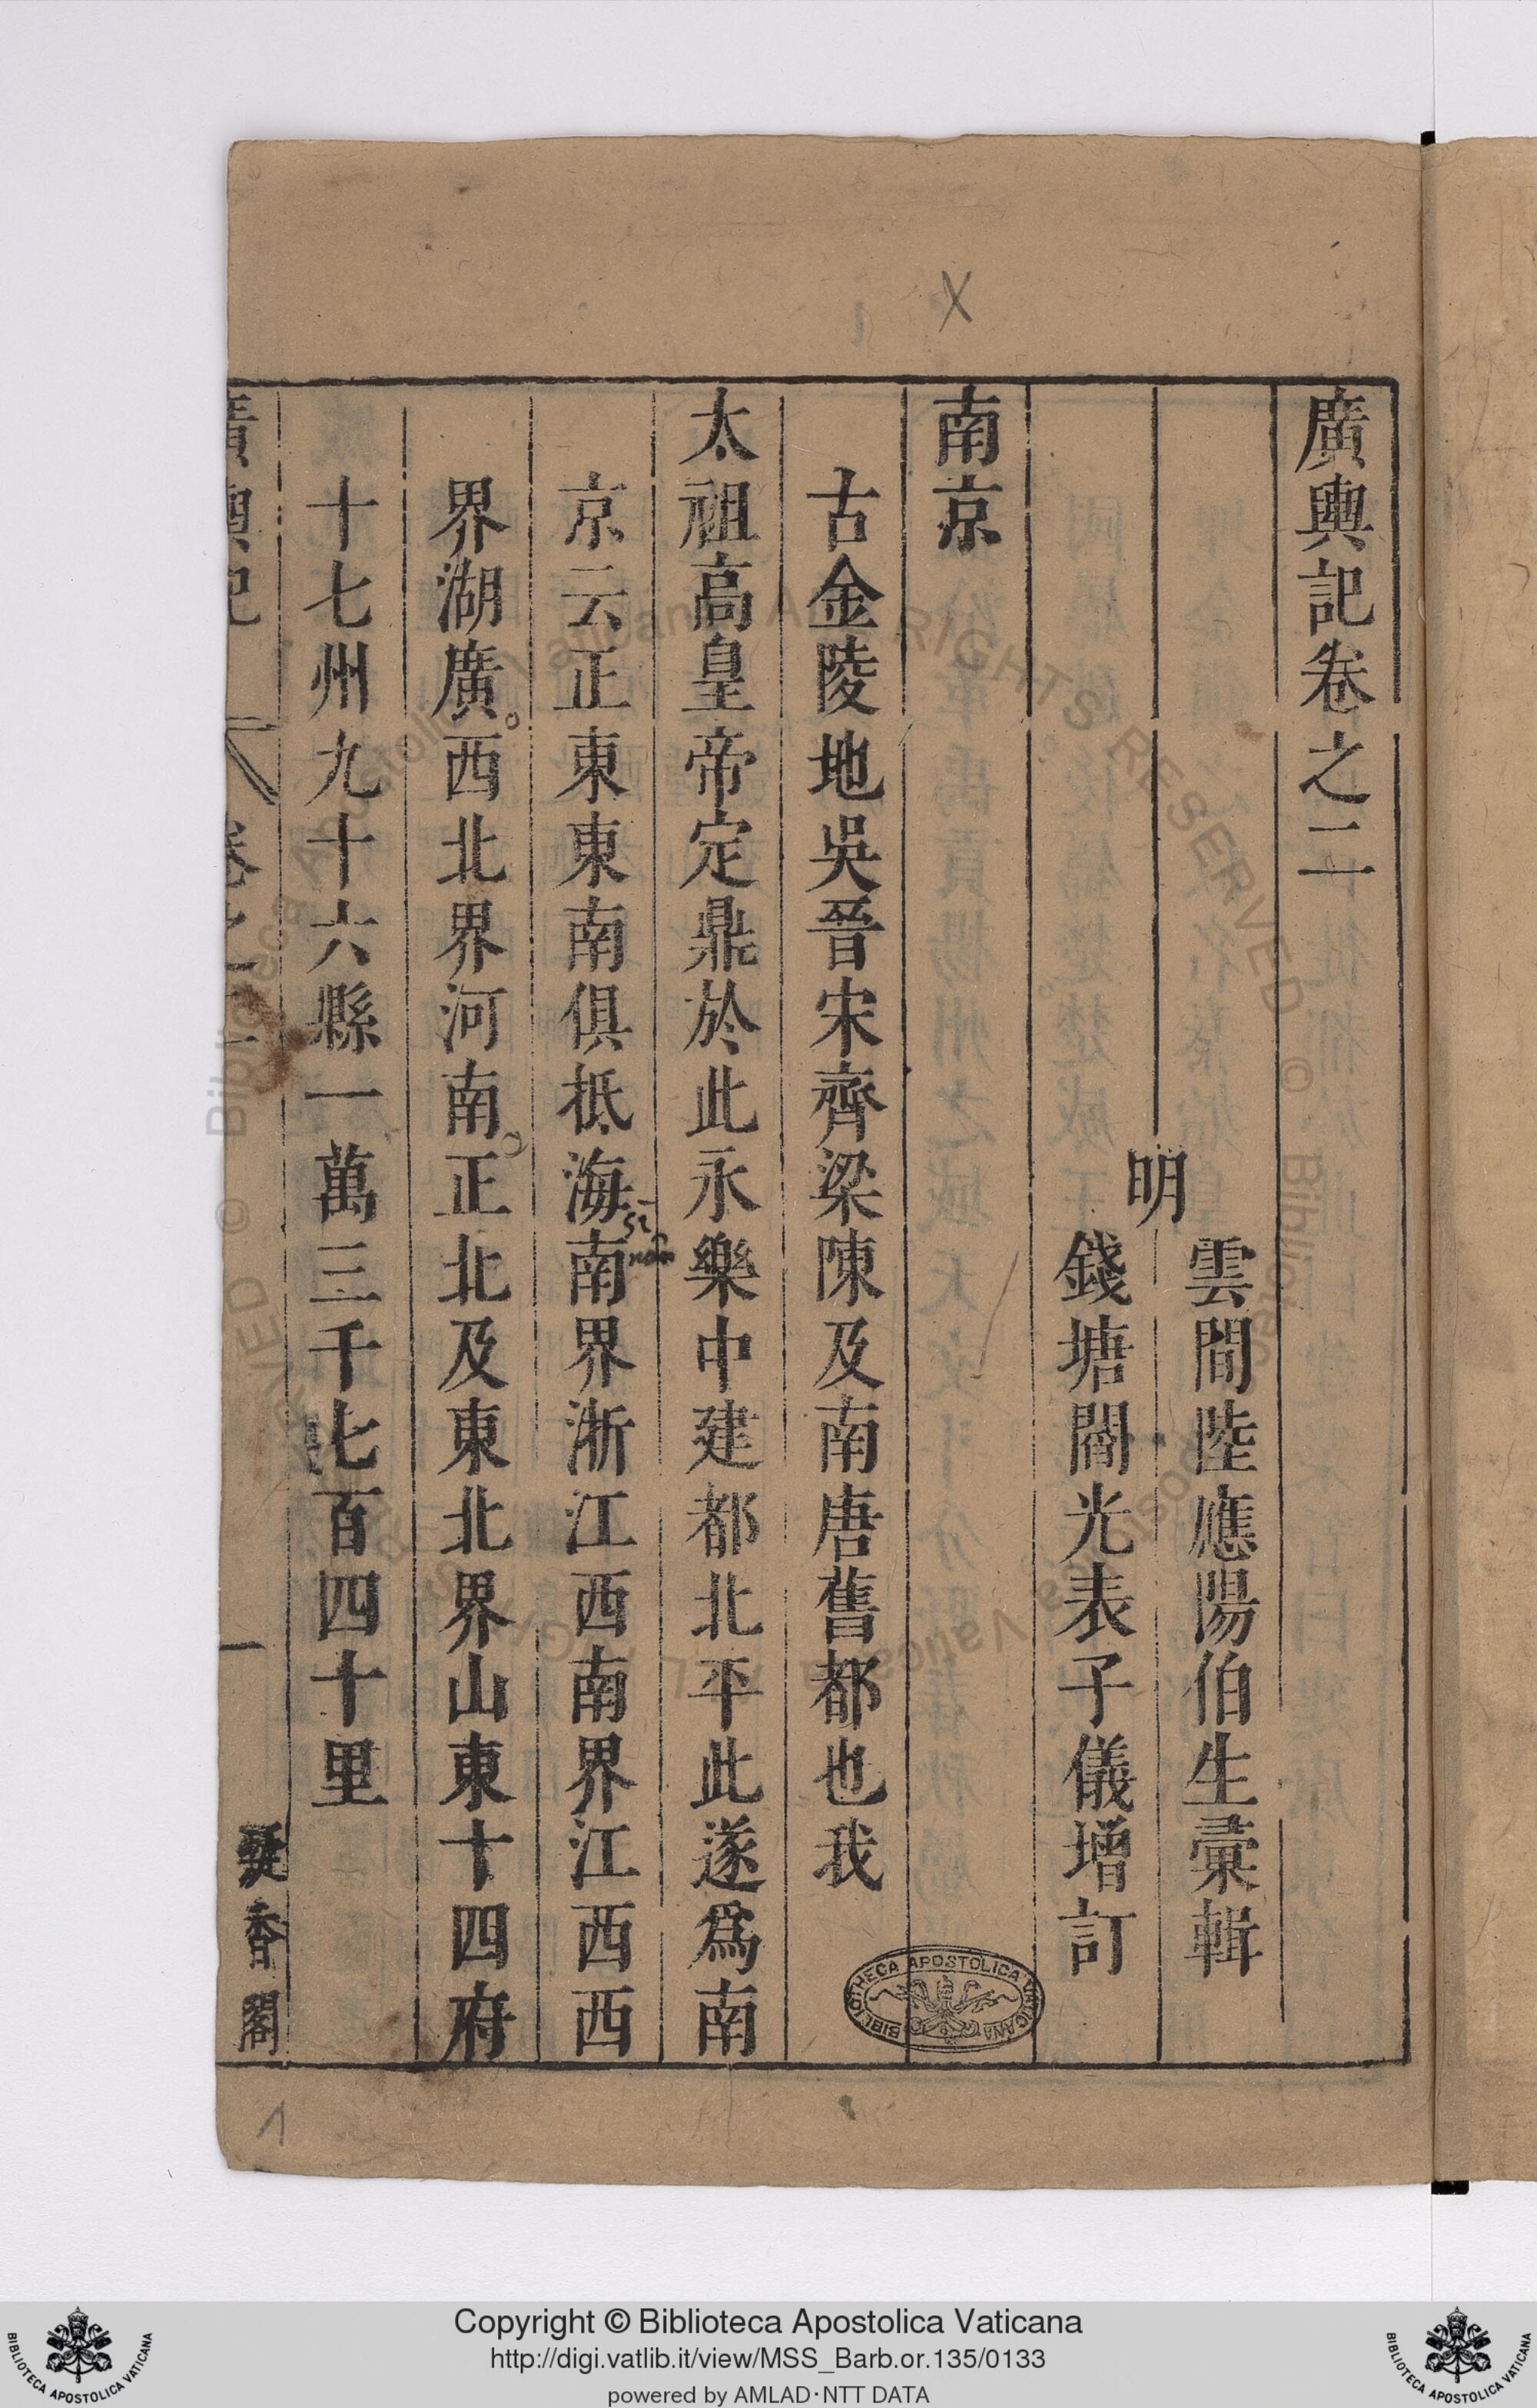 廣輿記卷之二
明
雲間陸應陽伯生彙輯
錢塘閻光表子儀增訂
南京
古金陵地吳晉宋齊梁陳及南唐舊都也我
太祖高皇帝定鼎於此永樂中建都北平此遂爲南
京云正東東南俱抵海南界浙江西南界江西西
界湖廣。西北界河南。正北及東北界山東十四府
十七州九十六縣一萬三千七百四十里
廣輿記
卷之二
一
香閣
X
1
BIBLIOTHECA APOSTOLICA VATICANA
Copyright © Biblioteca Apostolica Vaticana
http://digi.vatlib.it/view/MSS_Barb.or.135/0133
powered by AMLAD·NTT DATA
BIBLIOTECA APOSTOLICA VATICANA
BIBLIOTECA APOSTOLICA VATICANA